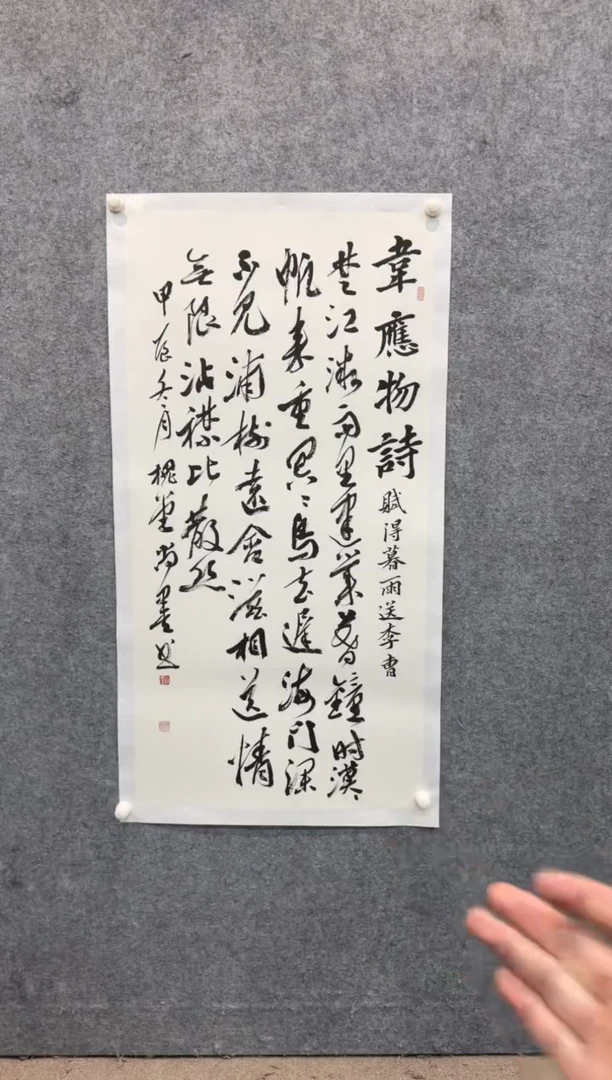 韋應物詩 賦得暮雨送李曹
楚江微雨里建業暮鐘時漠々
帆来重冥々鳥去遲海門深
不見浦樹遠含滋相送情
無限沾襟比散絲
甲辰冬月槐堂尚墨书